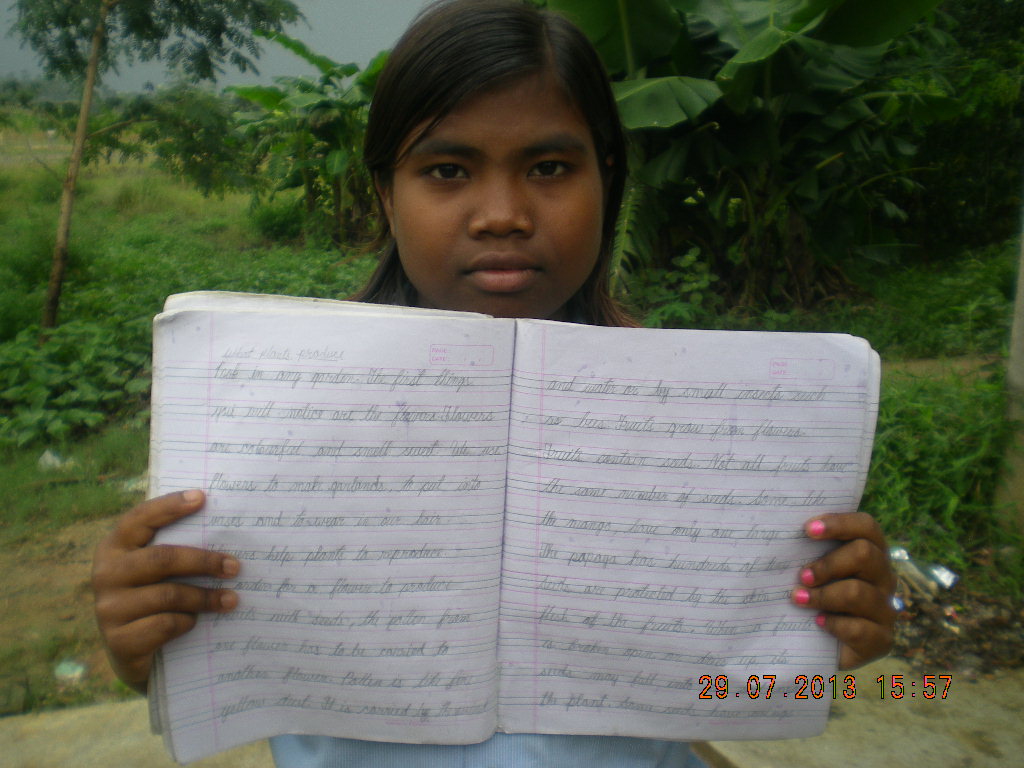 What plants produce
PAGE:
DATE:
Look in any garden. The first things
you will notice are the flowers. Flowers
are colourful and smell sweet. We use
flowers to make garlands, to put into
vases and to wear in our hair.
Flowers help plants to reproduce.
In order for a flower to produce
fruits with seeds, the pollen from
one flower has to be carried to
another flower. Pollen is like fine
yellow dust. It is carried by the wind
PAGE:
DATE:
and water or by small insects such
as bees. Fruits grow from flowers.
Fruits contain seeds. Not all fruits have
the same number of seeds. Some, like
the mango, have only one large
The papaya has hundreds of
seeds are protected by the skin
flesh of the fruits. When a fruit
is broken open or dries up, its
seeds may fall into
the plant. Some seeds have
29.07.2013 15:57